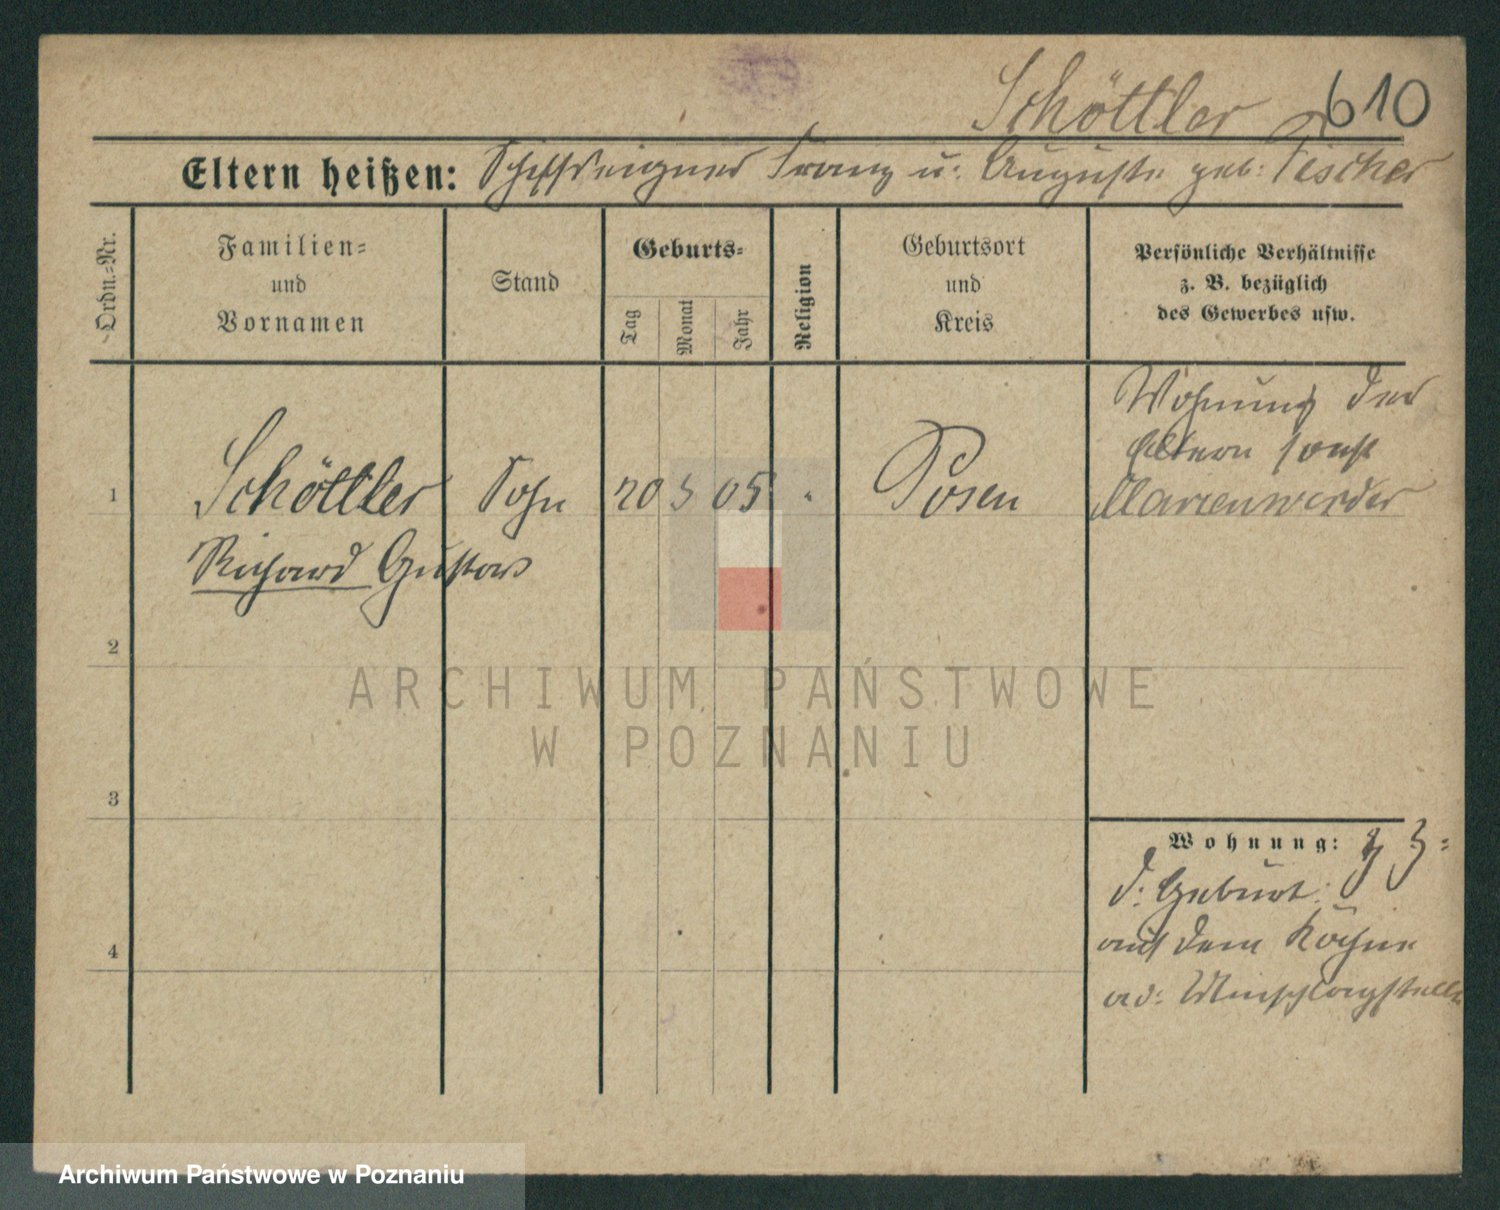 Schöttler 610
Eltern heißen: Schiffseigner Franz u. Auguste geb: Fischer
Ordn.=Nr.
Familien=
und
Vornamen
Stand
Geburts=
Tag
Monat
Jahr
Religion
Geburtsort
und
Kreis
Persönliche Verhältnisse
z. B. bezüglich
des Gewerbes usw.
Wohnung der
Eltern sonst
Marienwerder
1 Schöttler Sohn 20 5 05 Posen
Richard Gustav
2
3
4
Wohnung: z Z:
d: Geburt:
auf dem Kahne
ad: Umschlagstelle
ARCHIWUM PAŃSTWOWE
W POZNANIU
Archiwum Państwowe w Poznaniu